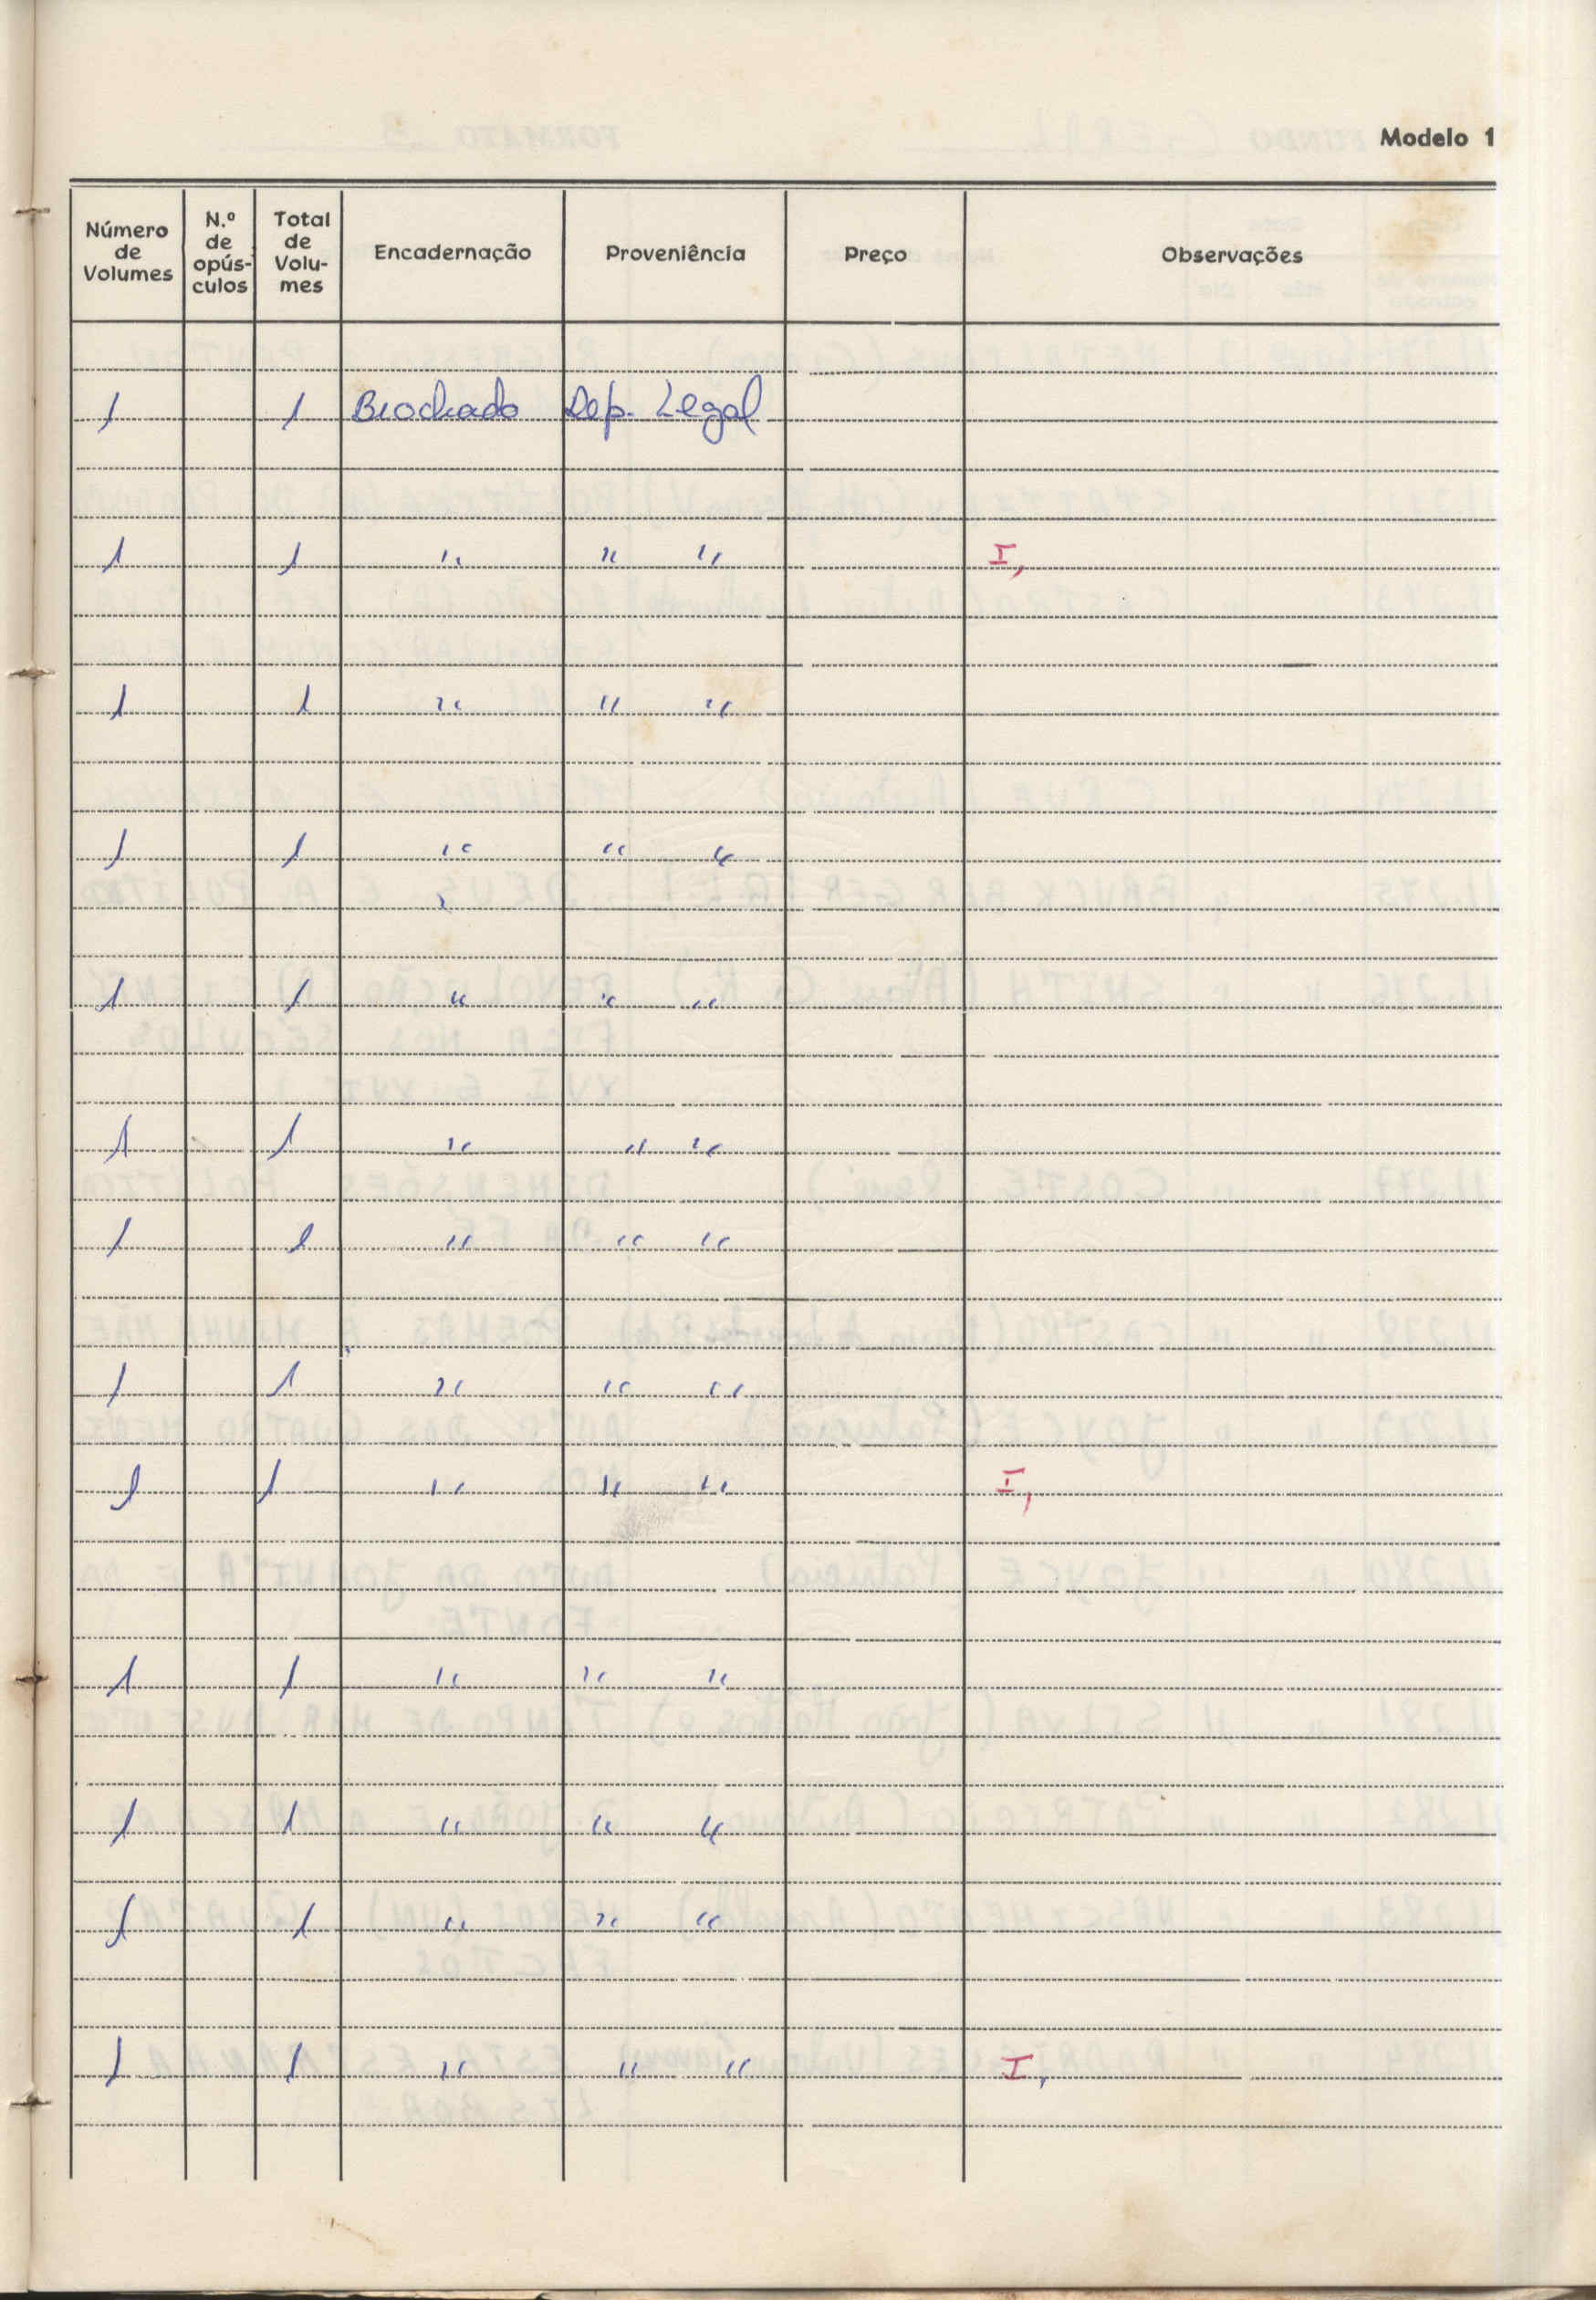 Modelo 1
Número de Volumes N.º de opús- culos Total de Volu- mes Encadernação Proveniência Preço Observações
1 1 Brochado Dep. Legal
1 1 " " " I,
1 1 " " "
1 1 " " "
1 1 " " "
1 1 " " "
1 1 " " "
1 1 " " "
1 1 " " " I,
1 1 " " "
1 1 " " "
1 1 " " "
1 1 " " " I,